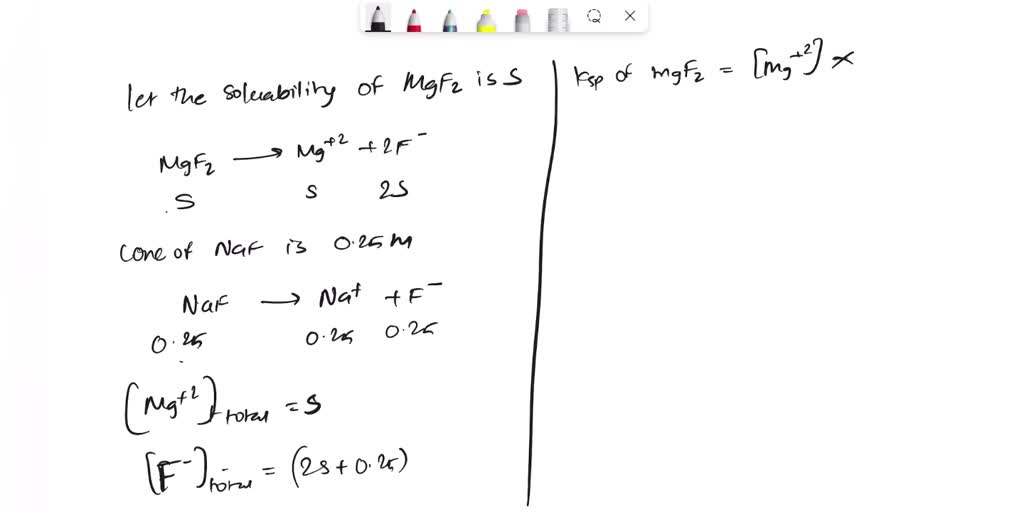 let the soluability of MgF2 is S
MgF2 → Mg+2 + 2F-
S S 2S
Conc of NaF is 0.25 M
NaF → Na+ + F-
0.25 0.25 0.25
[Mg+2]total = S
[F-]total = (2S + 0.25)
Ksp of MgF2 = [Mg+2] ×